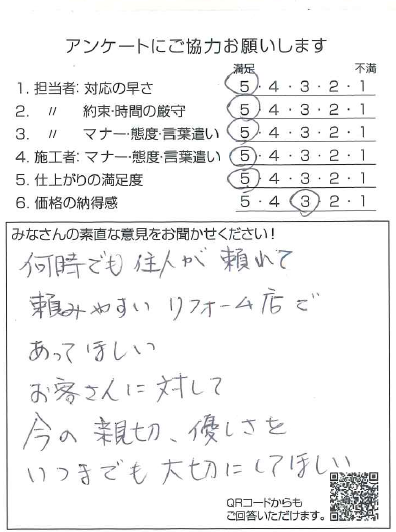 アンケートにご協力お願いします
満足 不満
1. 担当者: 対応の早さ 5・4・3・2・1
2. 〃 約束・時間の厳守 5・4・3・2・1
3. 〃 マナー・態度・言葉遣い 5・4・3・2・1
4. 施工者: マナー・態度・言葉遣い 5・4・3・2・1
5. 仕上がりの満足度 5・4・3・2・1
6. 価格の納得感 5・4・3・2・1
みなさんの素直な意見をお聞かせください!
何時でも住人が頼れて
頼みやすいリフォーム店で
あってほしい
お客さんに対して
今の親切、優しさを
いつまでも大切にしてほしい
QRコードからも
ご回答いただけます。